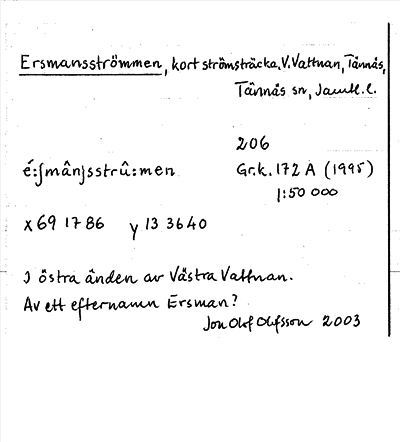 Ersmansströmmen, kort strömsträcka, V. Vattnan, Tännäs,
Tännäs sn, Jämtl. l.
206
é:ʃmân}sstrû:men Gr.k. 172 A (1995)
1:50 000
x 69 17 86 y 13 36 40
I östra änden av Västra Vattnan.
Av ett efternamn Ersman?
Jon Olof Olofsson 2003